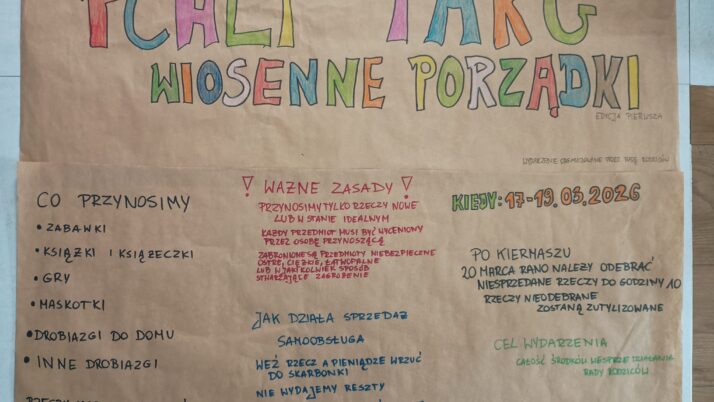 PCHLI TARG
WIOSENNE PORZĄDKI
EDYCJA PIERWSZA
WYDARZENIE ORGANIZOWANE PRZEZ RADĘ RODZICÓW
CO PRZYNOSIMY
• ZABAWKI
• KSIĄŻKI I KSIĄŻECZKI
• GRY
• MASKOTKI
• DROBIAZGI DO DOMU
• INNE DROBIAZGI
! WAŻNE ZASADY !
PRZYNOSIMY TYLKO RZECZY NOWE
LUB W STANIE IDEALNYM
KAŻDY PRZEDMIOT MUSI BYĆ WYCENIONY
PRZEZ OSOBĘ PRZYNOSZĄCĄ
ZABRONIONE SĄ PRZEDMIOTY NIEBEZPIECZNE
OSTRE, CIĘŻKIE, ŁATWOPALNE
LUB W JAKIKOLWIEK SPOSÓB
STWARZAJĄCE ZAGROŻENIE
JAK DZIAŁA SPRZEDAŻ
SAMOOBSŁUGA
WEŹ RZECZ A PIENIĄDZE WRZUĆ
DO SKARBONKI
NIE WYDAJEMY RESZTY
KIEDY: 17-19.03.2026
PO KIERMASZU
20 MARCA RANO NALEŻY ODEBRAĆ
NIESPRZEDANE RZECZY DO GODZINY 10
RZECZY NIEODEBRANE
ZOSTANĄ ZUTYLIZOWANE
CEL WYDARZENIA
CAŁOŚĆ ŚRODKÓW WESPRZE DZIAŁANIA
RADY RODZICÓW